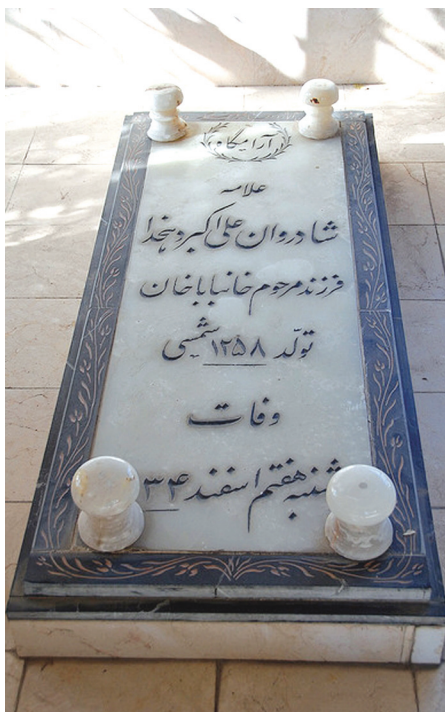 آرامگاه
علامه
شادروان علی اکبر دهخدا
فرزند مرحوم خانبابا خان
تولّد ۱۲۵۸ شمسی
وفات
شنبه هفتم اسفند ۳۴